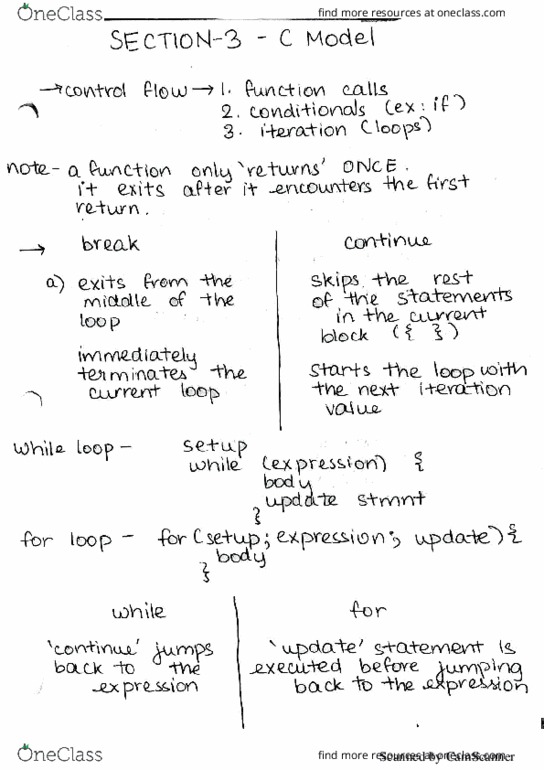 OneClass
find more resources at oneclass.com
SECTION-3 - C Model
→control flow → 1. function calls
2. conditionals (ex: if)
3. iteration (loops)
note- a function only 'returns' ONCE.
it exits after it encounters the first
return.
→ break
a) exits from the
middle of the
loop
immediately
terminates the
current loop
continue
skips the rest
of the statements
in the current
block ({ })
starts the loop with
the next iteration
value
while loop - setup
while (expression) {
body
update stmnt
}
for loop - for (setup; expression; update) {
body
}
while
'continue' jumps
back to the
expression
for
'update' statement is
executed before jumping
back to the expression
OneClass
find more resources at oneclass.com
Scanned by CamScanner